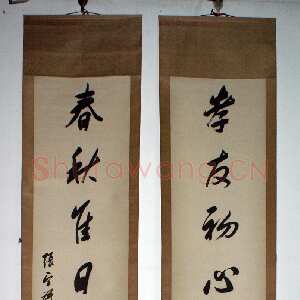 孝友初心
春秋佳日
張
Shufawang.CN